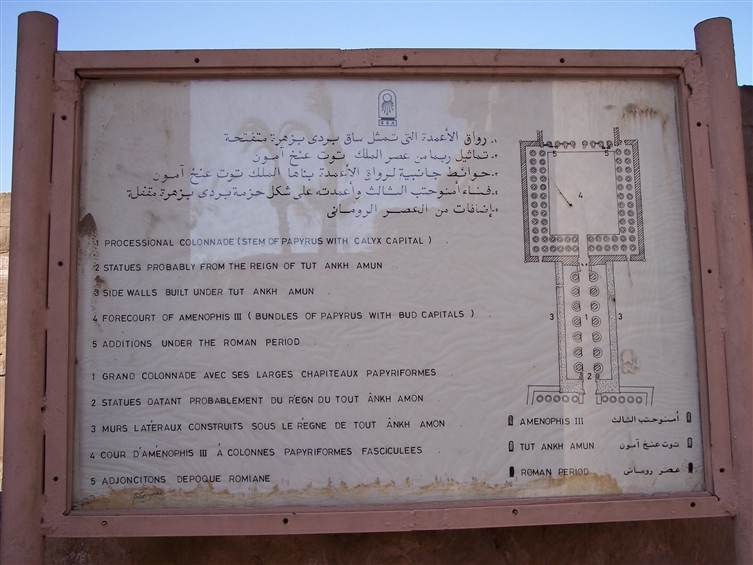 ١. رواق الأعمدة التى تمثل ساق بردى بزهرة متفتحة
٢. تماثيل ربما من عصر الملك توت عنخ آمون
٣. حوائط جانبية لرواق الأعمدة بناها الملك توت عنخ آمون
٤. فناء أمنوحتب الثالث وأعمدته على شكل حزمة بردى بزهرة مقفلة
٥. إضافات من العصر الرومانى
1 PROCESSIONAL COLONNADE (STEM OF PAPYRUS WITH CALYX CAPITAL) .
2 STATUES PROBABLY FROM THE REIGN OF TUT ANKH AMUN
3 SIDE WALLS BUILT UNDER TUT ANKH AMUN
4 FORECOURT OF AMENOPHIS III (BUNDLES OF PAPYRUS WITH BUD CAPITALS) .
5 ADDITIONS UNDER THE ROMAN PERIOD
1 GRAND COLONNADE AVEC SES LARGES CHAPITEAUX PAPYRIFORMES
2 STATUES DATANT PROBABLEMENT DU RÉGN DU TOUT ÂNKH AMON
3 MURS LATÉRAUX CONSTRUITS SOUS LE RÉGNE DE TOUT ÂNKH AMON
4 COUR D'AMÉNOPHIS III À COLONNES PAPYRIFORMES FASCICULÉES
5 ADJONCITONS DEPOQUE ROMIANE
5 5
4
3 1 3
2
AMENOPHIS III أمنوحتب الثالث
TUT ANKH AMUN توت عنخ آمون
ROMAN PERIOD عصر رومانى